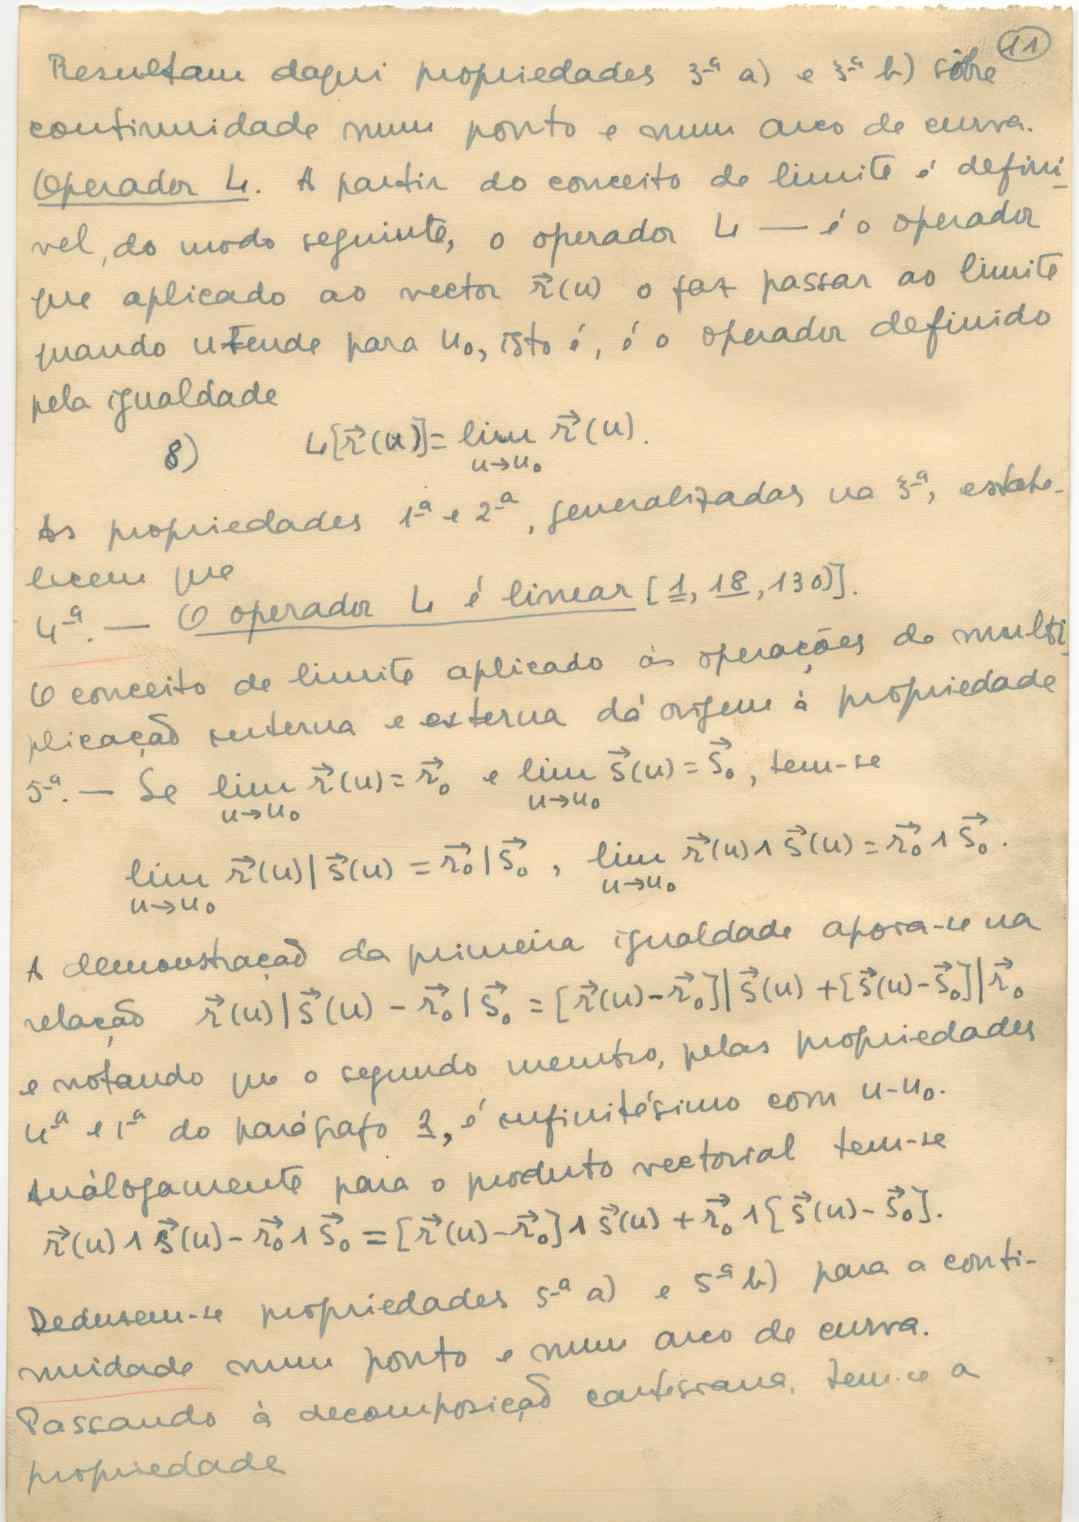 11
Resultam daqui propriedades 3ª a) e 3ª b) sôbre
continuidade num ponto e num arco de curva.
Operador L. A partir do conceito de limite é defini-
vel, do modo seguinte, o operador L — é o operador
que aplicado ao vector r⃗(u) o faz passar ao limite
quando u tende para u₀, isto é, é o operador definido
pela igualdade
8) L[r⃗(u)] = lim r⃗(u).
u→u₀
As propriedades 1ª e 2ª, generalizadas na 3ª, estabe-
lecem que
4ª. — O operador L é linear [1, 18, 130)].
O conceito de limite aplicado às operações de multi-
plicação interna e externa dá origem à propriedade
5ª. — Se lim r⃗(u) = r⃗₀ e lim s⃗(u) = s⃗₀, tem-se
u→u₀ u→u₀
lim r⃗(u)|s⃗(u) = r⃗₀|s⃗₀, lim r⃗(u)∧s⃗(u) = r⃗₀∧s⃗₀.
u→u₀ u→u₀
A demonstração da primeira igualdade apoia-se na
relação r⃗(u)|s⃗(u) − r⃗₀|s⃗₀ = [r⃗(u)−r⃗₀]|s⃗(u) + [s⃗(u)−s⃗₀]|r⃗₀
e notando que o segundo membro, pelas propriedades
4ª e 1ª do parágrafo 3, é infinitésimo com u-u₀.
Análogamente para o produto vectorial tem-se
r⃗(u)∧s⃗(u) − r⃗₀∧s⃗₀ = [r⃗(u)−r⃗₀]∧s⃗(u) + r⃗₀∧[s⃗(u)−s⃗₀].
Deduzem-se propriedades 5ª a) e 5ª b) para a conti-
nuidade num ponto e num arco de curva.
Passando à decomposição cartesiana, tem-se a
propriedade